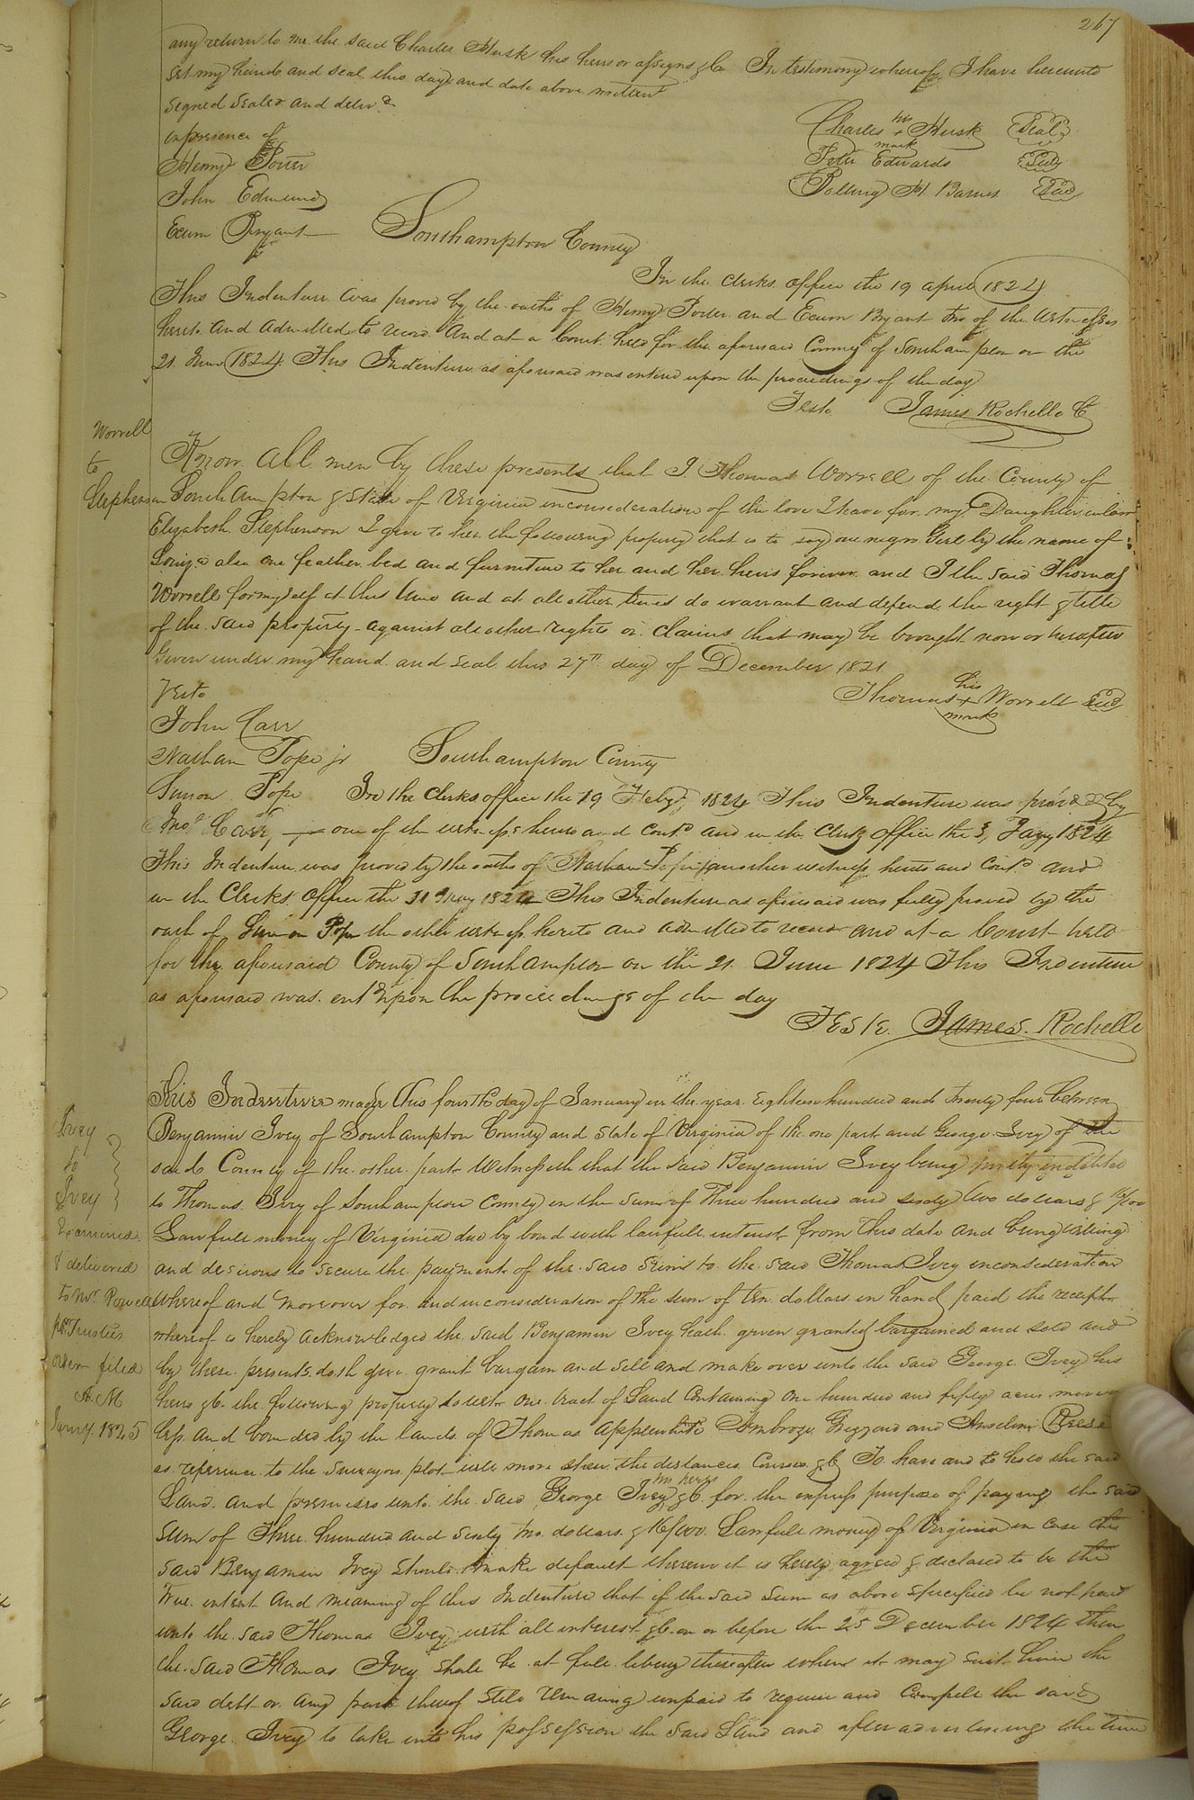 267
any return to me the said Charles Husk his heirs or assigns &c In testimony whereof I have hereunto
set my hand and seal this day and date above written
signed sealed and delivd
in presence of
Charles his + mark Husk Seal
Henry Porter
Peter Edwards Seal
John Edmund
Bolling H. Barnes Seal
Exum Bryant
Southampton County
In the Clerks office the 19 april 1824
This Indenture was proved by the oaths of Henry Porter and Exum Bryant two of the witnesses
hereto and admitted to record And at a Court held for the aforesaid County of Southampton on the
21 June 1824. This Indenture as aforesaid was entered upon the proceedings of the day
Teste James Rochelle C
Worrell
to
Stephenson
Know all men by these presents that I Thomas Worrell of the County of
Southampton & State of Virginia in consideration of the love I have for my Daughter in law
Elizabeth Stephenson I give to her the following property that is to say one negro Girl by the name of
also one feather bed and furniture to her and her heirs forever and I the said Thomas
Worrell for myself at this time and at all other times do warrant and defend the right & title
of the said property against all other rights or claims that may be brought now or hereafter
Given under my hand and seal this 27th day of December 1821
Teste
Thomas his + mark Worrell Seal
John Carr
Nathan Pope jr Southampton County
Simon Pope In the Clerks office the 19 Feby 1824 This Indenture was prov'd by
Jno. Carr, one of the witnesses hereto and Contd and in the Clerks office the 3, Jany 1824
This Indenture was proved by the oaths of Nathan Pope jr another witness hereto and Contd and
in the Clerks office the 31 May 1824 This Indenture as aforesaid was fully proved by the
oath of Simon Pope the other witness hereto and admitted to record and at a Court held
for the aforesaid County of Southampton on the 21 June 1824 This Indenture
as aforesaid was entd upon the proceedings of the day
TESTE. James. Rochelle
Ivey
to
Ivey
Examined
& delivered
to Mr. Powell
pr Trustees
order filed
A. M
Jany. 1825
This Indenture made this fourth day of January in the year Eighteen hundred and twenty four between
Benjamin Ivey of Southampton County and State of Virginia of the one part and George Ivey of the
said County of the other part Witnesseth that the said Benjamin Ivey being justly indebted
to Thomas Ivey of Southampton County in the sum of Three hundred and sixty two dollars & 16/100
Lawfull money of Virginia due by bond with lawfull interest from this date and being willing
and desirous to secure the payment of the said sum to the said Thomas Ivey in consideration
whereof and moreover for and in consideration of the sum of ten dollars in hand paid the receipt
whereof is hereby acknowledged the said Benjamin Ivey hath given granted bargained and sold and
by these presents doth give grant bargain and sell and make over unto the said George Ivey his
heirs &c the following property to wit One tract of Land Containing One hundred and fifty acres more or
less and bounded by the lands of Thomas Applewhite Ambrose Grizzard and Anselm Reese
as reference to the surveyors plot will more shew the distances Courses &c To have and to hold the said
Land and premises unto the said George Ivey his heirs &c for the express purpose of paying the said
sum of Three hundred and Sixty Two dollars & 16/100 Lawfull money of Virginia in case the
said Benjamin Ivey should make default therein it is hereby agreed & declared to be the
True intent and meaning of this Indenture that if the said sum as above specified be not paid
unto the said Thomas Ivey with all interest &c on or before the 25 December 1824 then
the said Thomas Ivey shall be at full liberty thereafter when it may suit him the
said debt or any part thereof still remaining unpaid to require and Compell the said
George Ivey to take into his possession the said Land and after advertising the time